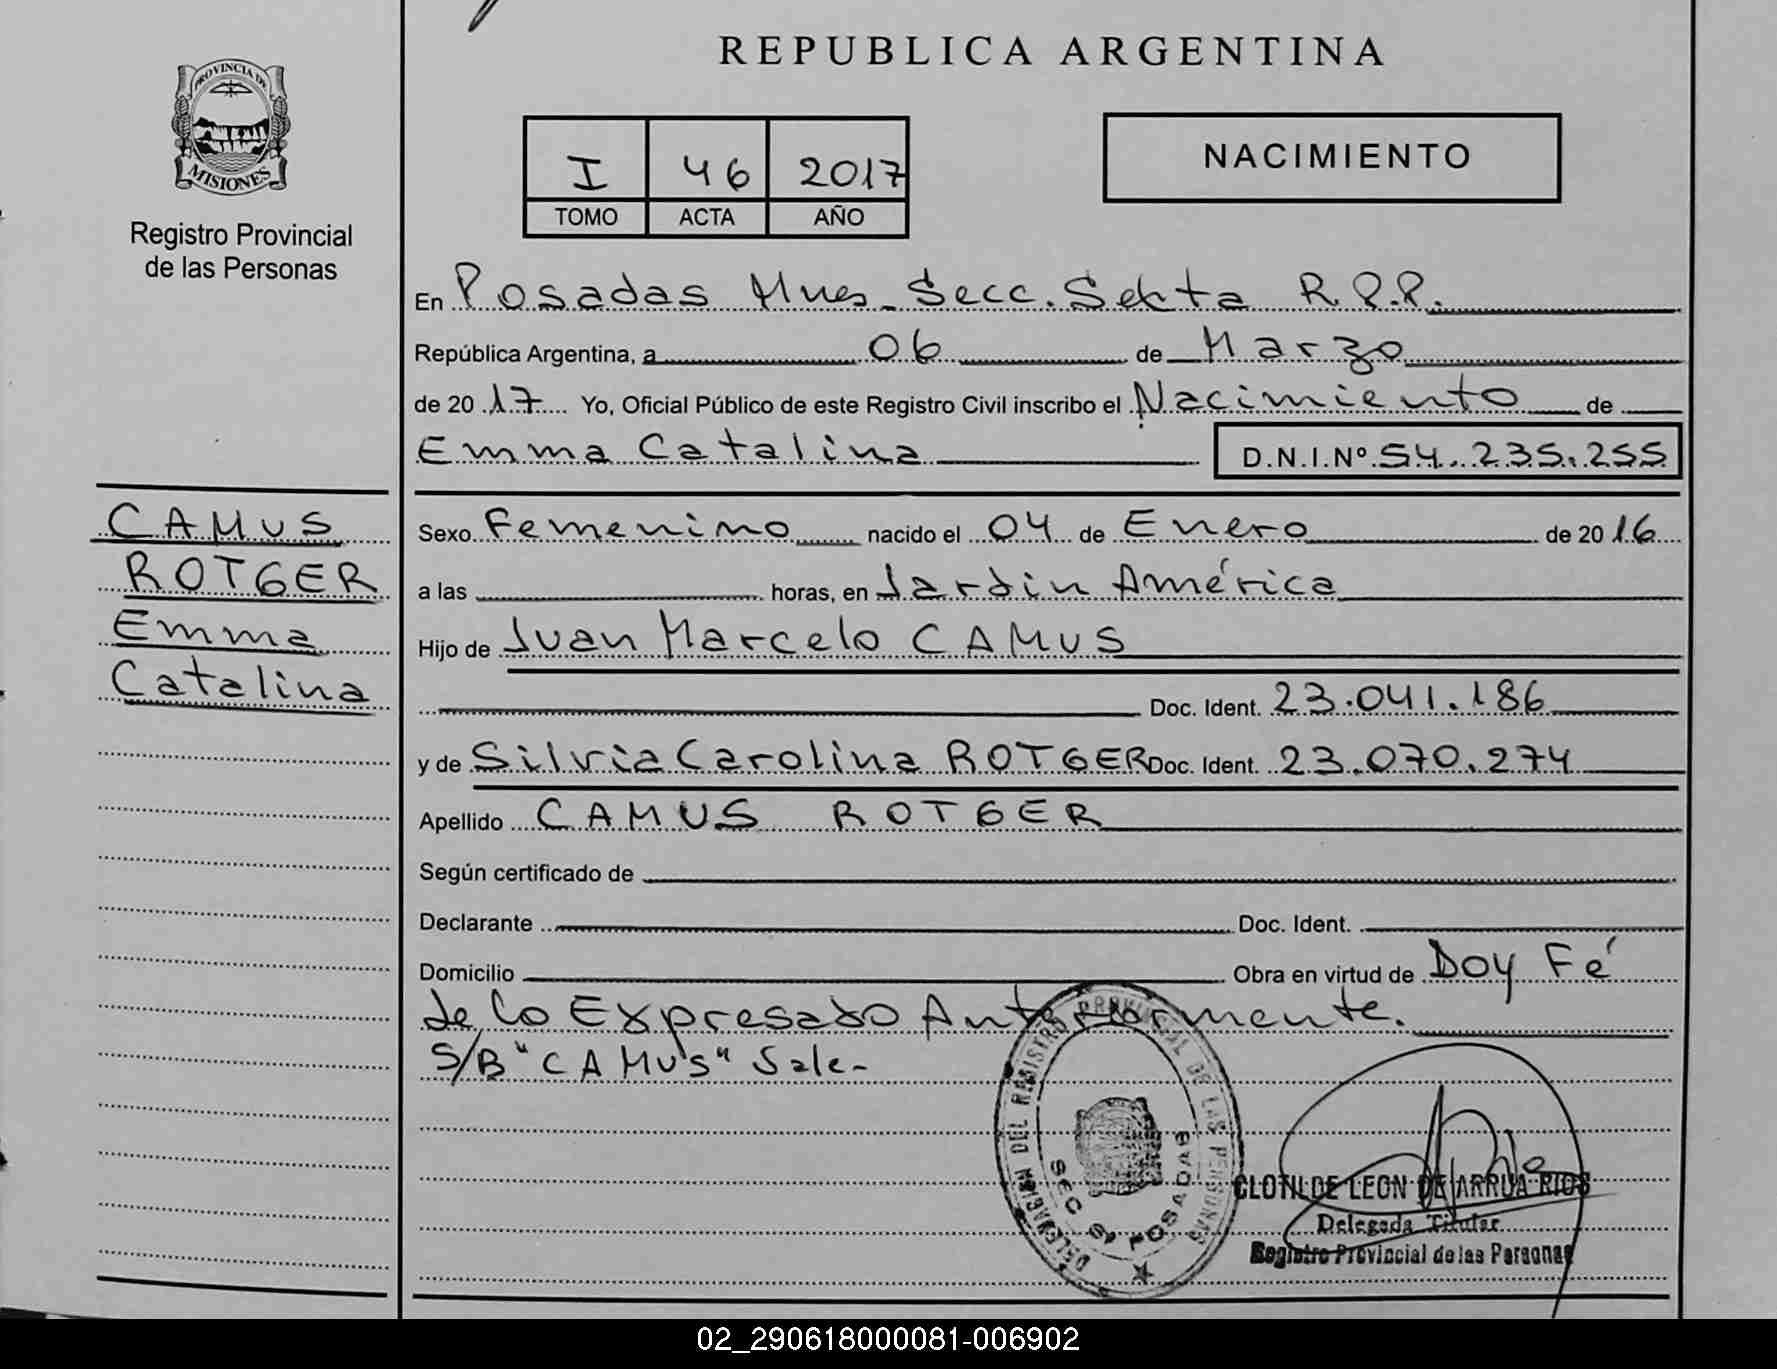 REPUBLICA ARGENTINA
PROVINCIA DE
MISIONES
Registro Provincial
de las Personas
I 46 2017
TOMO ACTA AÑO
NACIMIENTO
En Posadas Mnes. Secc. Sexta R.P.P.
República Argentina, a 06 de Marzo
de 2017 Yo, Oficial Público de este Registro Civil inscribo el Nacimiento de
Emma Catalina D.N.I.Nº 54.235.255
CAMUS
ROTGER
Emma
Catalina
Sexo Femenino nacido el 04 de Enero de 2016
a las horas, en Jardin América
Hijo de Juan Marcelo CAMUS
Doc. Ident. 23.041.186
y de Silvia Carolina ROTGER Doc. Ident. 23.070.274
Apellido CAMUS ROTGER
Según certificado de
Declarante Doc. Ident.
Domicilio Obra en virtud de Doy Fé
de lo Expresado Anteriormente.
S/B "CAMUS" Vale-
DELEGACION DEL REGISTRO PROVINCIAL DE LAS PERSONAS
SEC 6ª POSADAS
CLOTILDE LEON DE ARRUA RIOS
Delegada Titular
Registro Provincial de las Personas
02_290618000081-006902